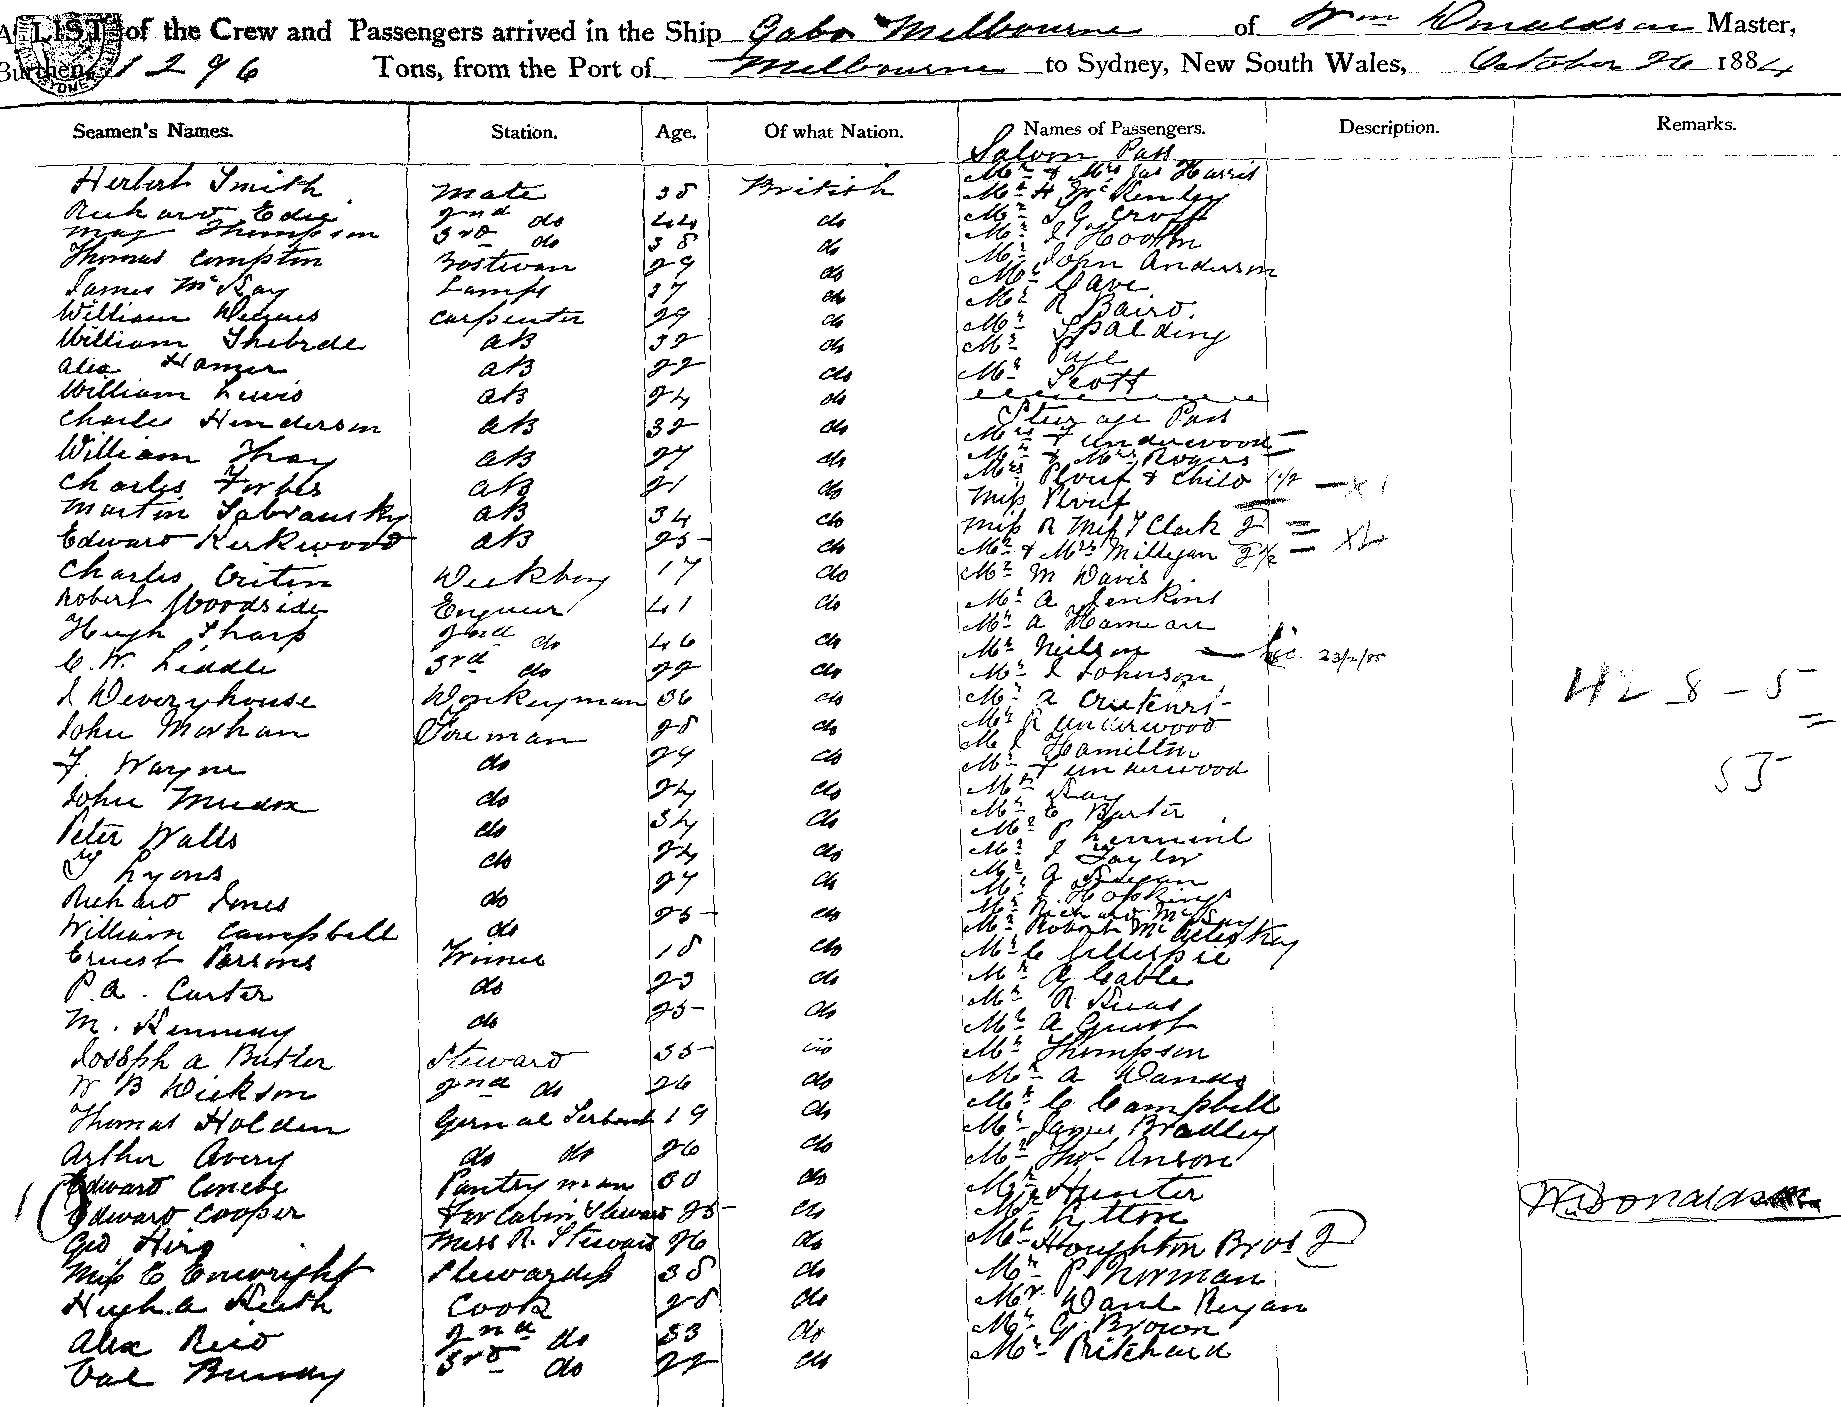 A LIST of the Crew and Passengers arrived in the Ship Gabo Melbourne of Wm Donaldson Master,
Burthen 1296 Tons, from the Port of Melbourne to Sydney, New South Wales, October 26 1884
Seamen's Names. Station. Age. Of what Nation. Names of Passengers. Description. Remarks.
Saloon Pass
Herbert Smith Mate 38 British Mr & Mrs Jas Harris
Richard Edie 2nd do 44 do Mr H McKenley
Thompson 3rd do 38 do Mr S G Croft
Thomas Compton Bostwan 29 do Mr J
James McKay Lamps 37 do Mr John Anderson
William Carpenter 29 do Mr Cave
William AB 32 do Mr R Baird.
Alex AB 22 do Mr Spalding
William Lewis AB 24 do Mr Page
Charles Henderson AB 32 do Mr Scott
Steerage Pass
William AB 27 do Mrs F Underwood
Charles Forbes AB 21 do Mr & Mrs Rogers
Martin AB 34 do Mrs Plouf & Child 1/2 — X 1
Edward Kirkwood AB 25 do Miss Plouf
Charles Deckboy 17 do Miss R Miss F Clark 2
Robert Woodside Engineer 41 do Mr & Mrs Milligan
Hugh Sharp 2nd do 46 do Mr M Davis
C. W. Liddle 3rd do 22 do Mr A Jenkins
J Deveryhouse Donkeyman 36 do Mr A
John Fireman 28 do Mr Neilson
F. Wayne do 29 do Mr J Johnson
John do 24 do Mr A
Peter Walls do 34 do Mr R Underwood
Lyons do 24 do Mr J Hamilton
Richard Jones do 27 do Mr F Underwood
William Campbell do 25 do Mr Kay
Ernest Parsons Trimer 18 do Mr C Barter
P. A. Carter do 23 do Mr P
M. do 25 do Mr J Taylor
Joseph A Butler Steward 35 do Mr
W B Dickson 2nd do 26 do Mr J Hopkings
Thomas Holden Gernal Serbent 19 do Mr Richard McKay
Arthur Avery do do 26 do Mr Robert Mc
Edward Pantryman 30 do Mr C Gillespie
Edward Cooper For Cabin Steward 25 do Mr R Cable
Geo King Mess R. Steward 26 do Mr R
Miss C Enwright Stewardess 38 do Mr A Guest
Hugh A Keith Cook 28 do Mr Thompson
Alex Reid 2nd do 33 do Mr A
Val Bundy 3rd do 22 do Mr C Campbell
Mr James Bradley
Mr Thos Anson
Mr Hunter
Mr Lytton
Mr Houghton Bros 2
Mr P Norman
Mr Danl Regan
Mr G Brown
Mr Pritchard
42 8 – 5
55
W. Donaldson